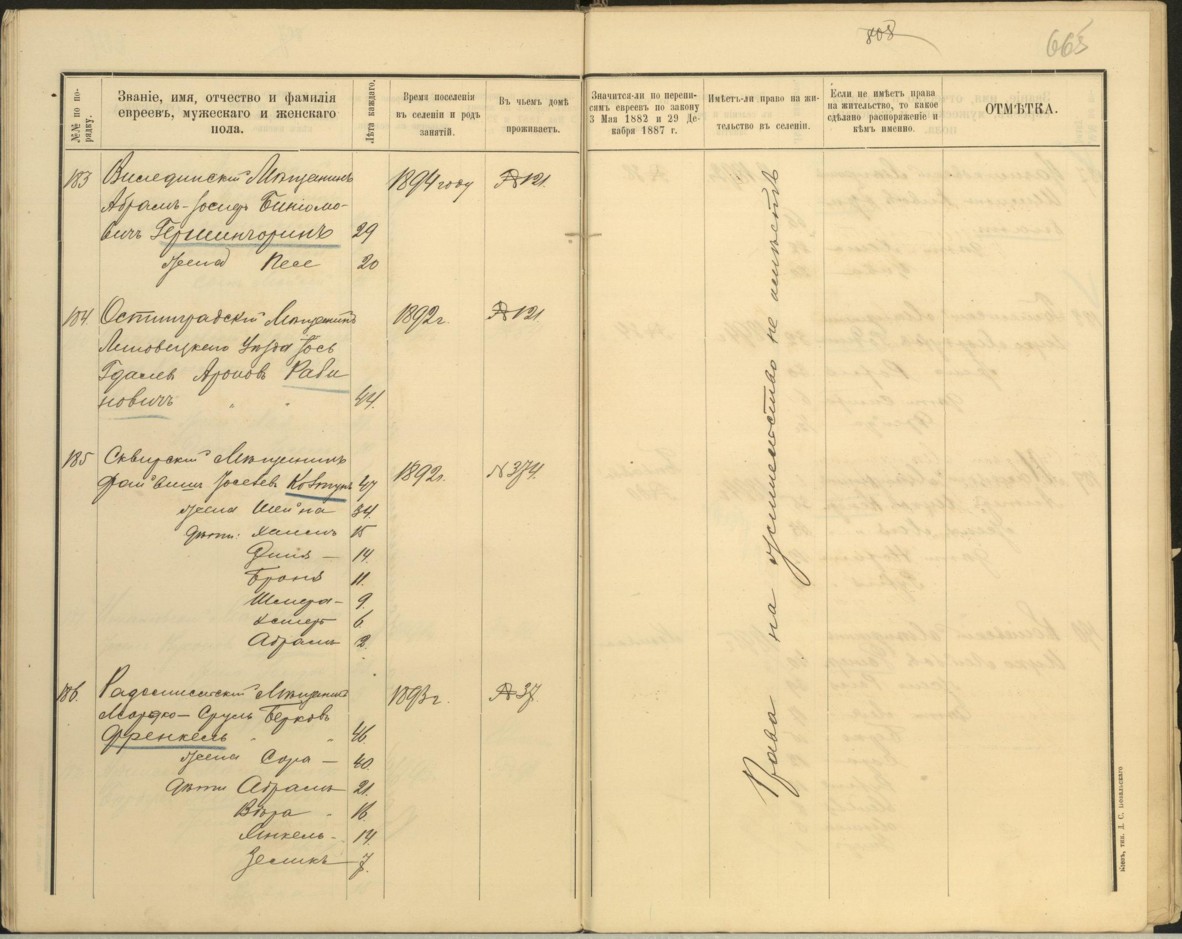 808
665
№№ по по-
рядку.
Званіе, имя, отчество и фамилія
евреевъ, мужескаго и женскаго
пола.
Лѣта каждаго.
Время поселенія
въ селеніи и родъ
занятій.
Въ чьемъ домѣ
проживаетъ.
Значится-ли по перепи-
сямъ евреевъ по закону
3 Мая 1882 и 29 Де-
кабря 1887 г.
Имѣетъ-ли право на жи-
тельство въ селеніи.
Если не имѣетъ права
на жительство, то какое
сдѣлано распоряженіе и
кѣмъ именно.
ОТМѢТКА.
183 Мѣщанинъ 1894 году № 121
Абрамъ-Іосифъ Биніомо-
вичъ 29
жена Песе 20
184 Мѣщанинъ 1892 г. № 121
Уѣзда Іось
Гдалевъ Ароновъ Раби
новичъ " " 44
185 Сквирскій Мѣщанинъ 1892 г. № 374
Іосевъ Ковтунъ 47
жена Шейна 34
дѣти: Хаимъ 15
14
Броня 11
9
Эстеръ 6
Абрамъ 2
186 Радомысльскій Мѣщанинъ 1893 г. № 37
Мордко-Сруль Берковъ
Френкель " " 46
жена Сора — 40
дѣти Абрамъ 21
Вѣра " 16
14
Зеликъ 7
Права на жительство не имѣетъ